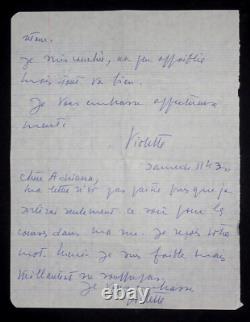 Je suis couchée, un peu affaiblie
mais tout va bien.
Je vous embrasse affectueuse
ment.
Violette
Samedi
Chère Adriana,
ma lettre n'est pas partie puisque je
seulement ce soir pour les
courses dans ma rue. Je reçois votre
mot. Merci. Je suis faible mais
Je embrasse
Violette
© ebay